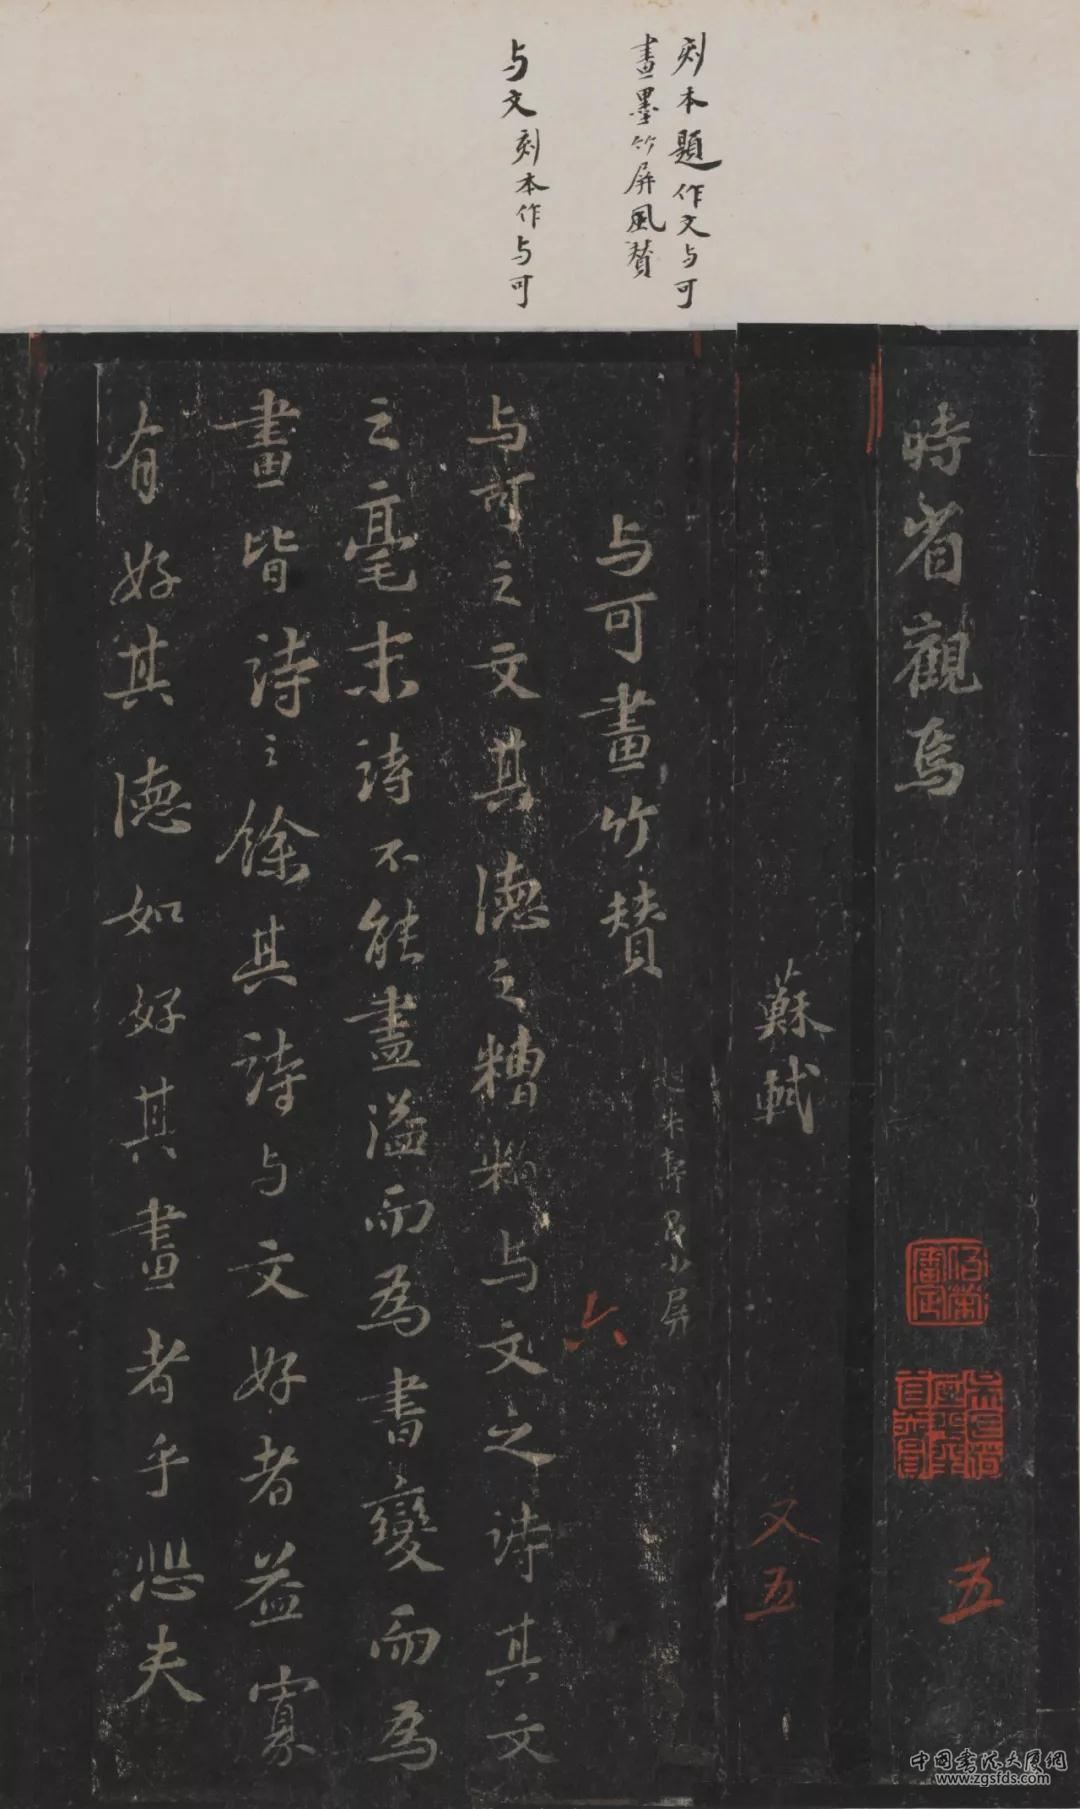 刻本題作文与可
畫墨竹屏風贊
与文刻本作与可
時省觀焉
蘇軾
与可畫竹贊
与可之文其德之糟粕与文之詩其文
之毫末詩不能盡溢而為書變而為
畫皆詩之餘其詩与文好者益寡
有好其德如好其畫者乎悲夫
五
又五
六
中國書法大廈網
www.zgsfds.com